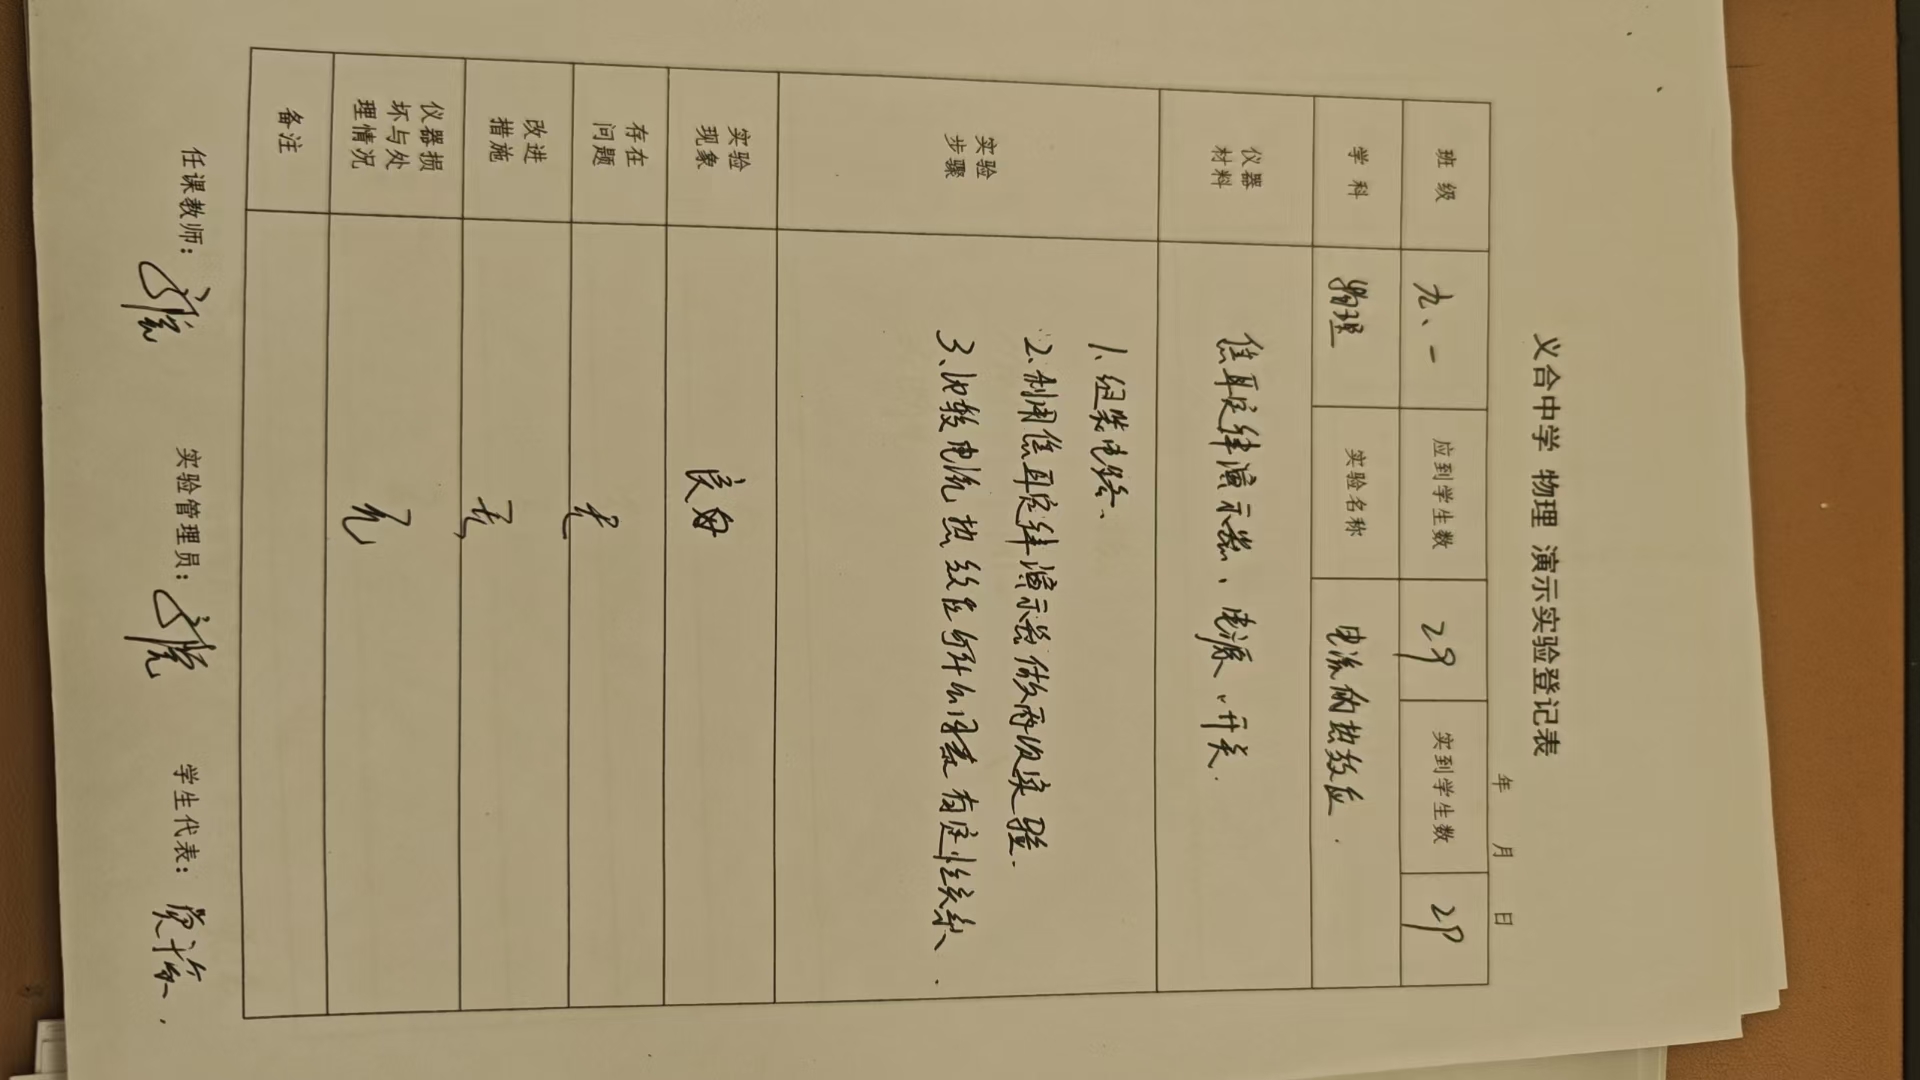 义合中学 物理 演示实验登记表
年 月 日
班级 九、一 应到学生数 29 实到学生数 29
学科 物理 实验名称 电流的热效应.
仪器
材料
焦耳定律演示器、电源、开关.
实验
步骤
1、组装电路、
2、利用焦耳定律演示器做两次实验.
3、比较电流热效应与什么因素有定性关系、.
实验
现象
良好
存在
问题
无
改进
措施
无
仪器损
坏与处
理情况
无
备注
任课教师: 实验管理员: 学生代表: